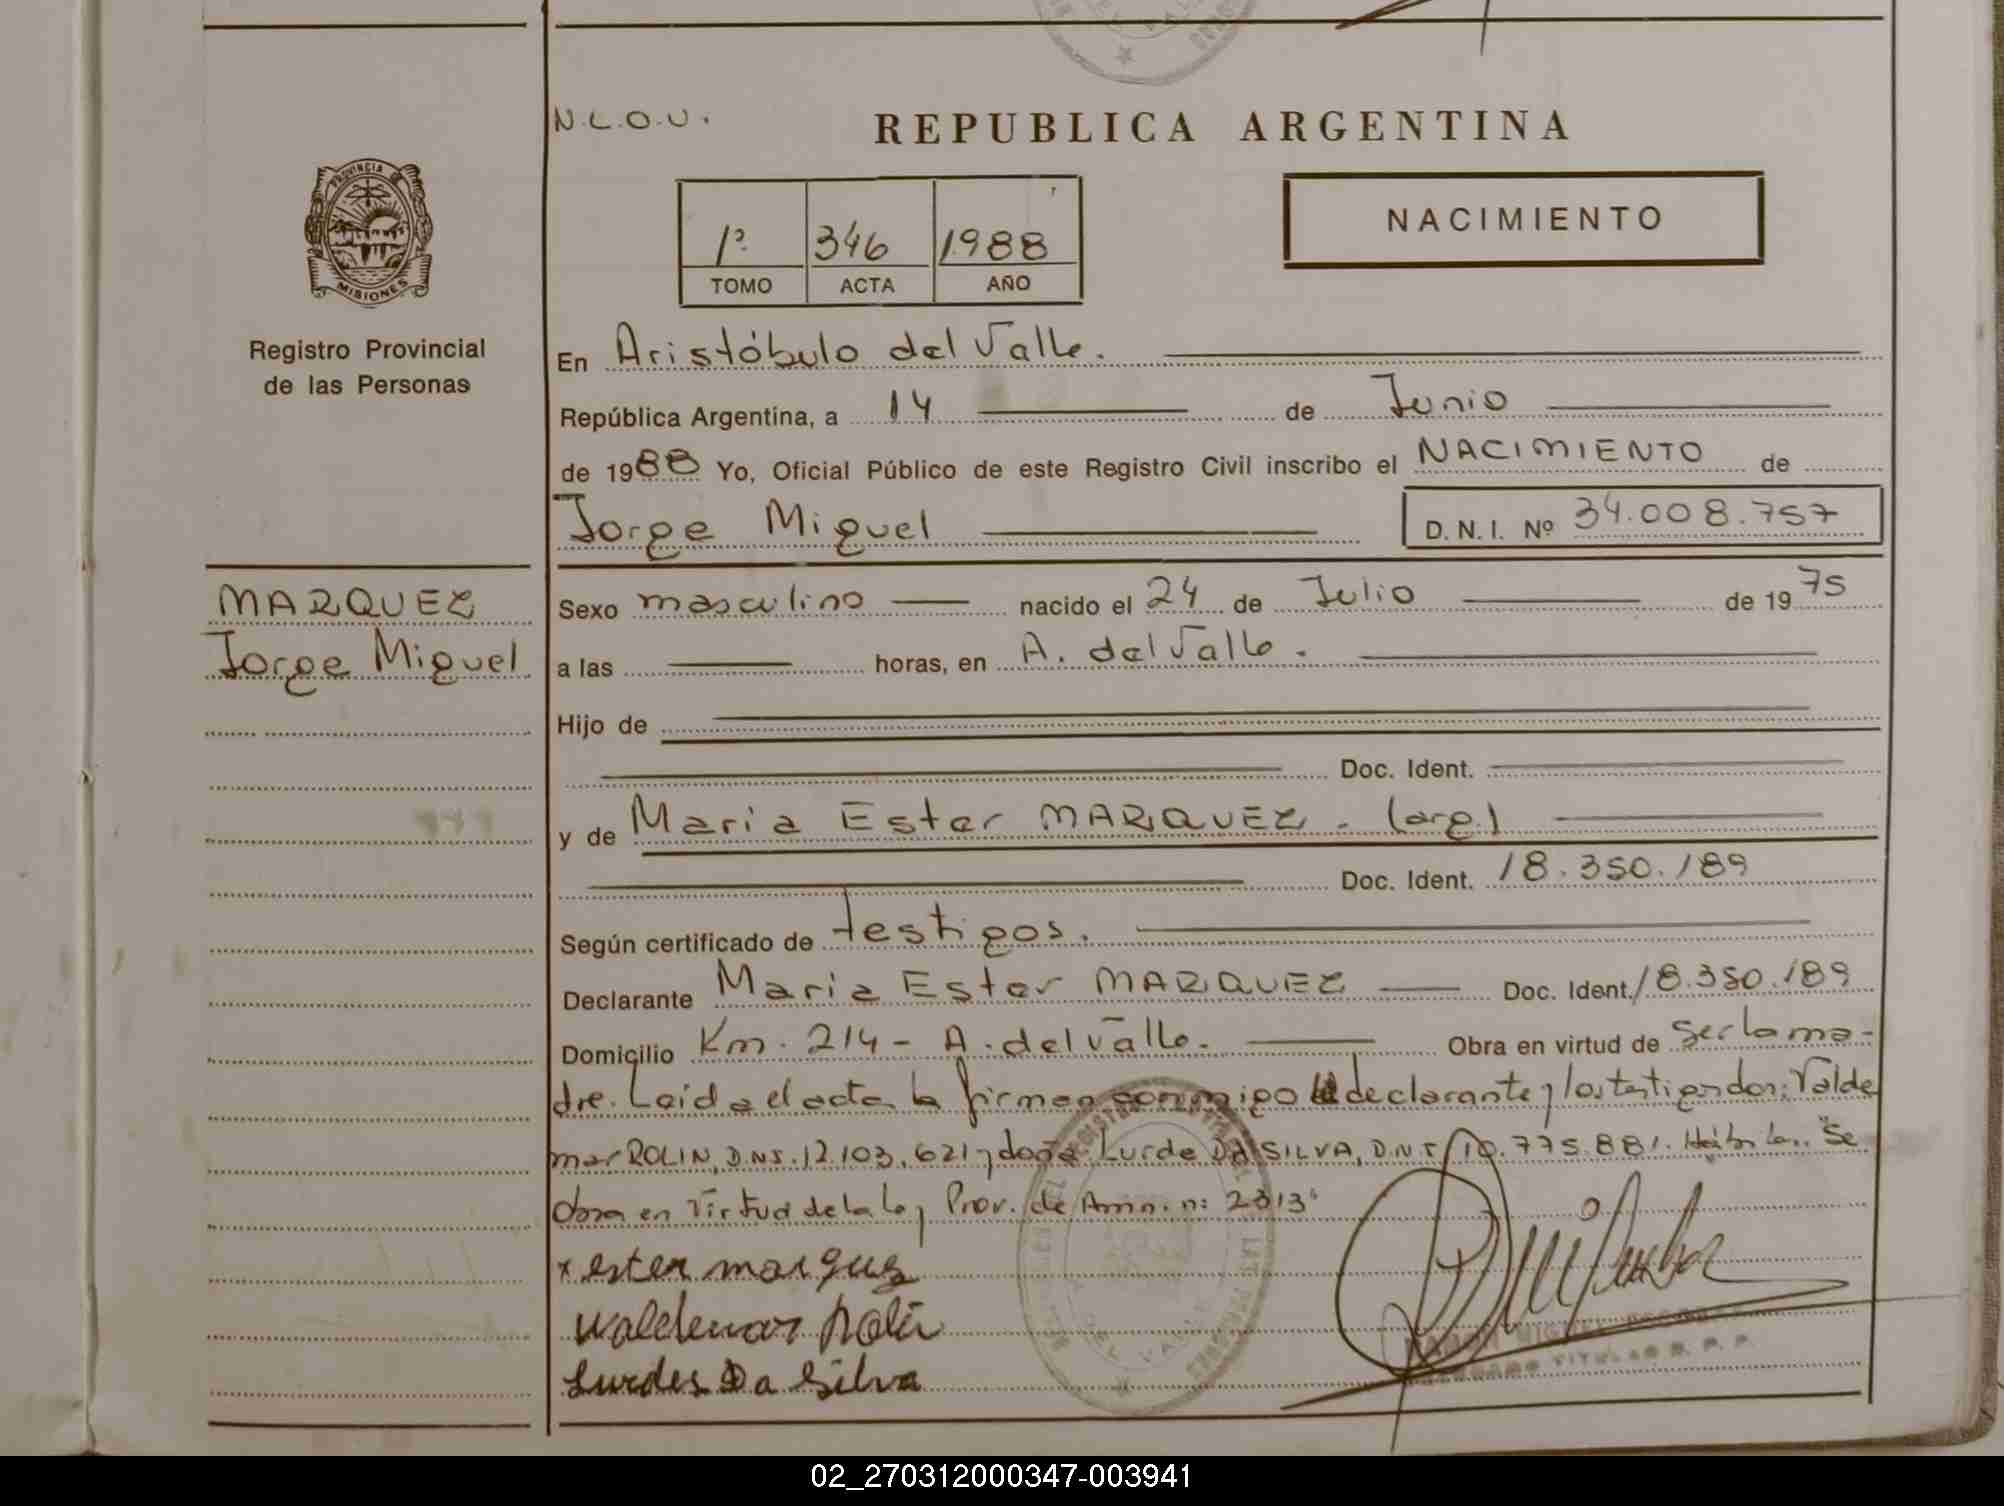 N.L.O.U.
REPUBLICA ARGENTINA
PROVINCIA DE
MISIONES
Registro Provincial
de las Personas
1º 346 1988
TOMO ACTA AÑO
NACIMIENTO
En Aristóbulo del Valle.
República Argentina, a 14 de Junio
de 1988 Yo, Oficial Público de este Registro Civil inscribo el NACIMIENTO de
Jorge Miguel D.N.I. Nº 34.008.757
MARQUEZ
Jorge Miguel
Sexo masculino nacido el 24 de Julio de 1975
a las horas, en A. del Valle.
Hijo de
Doc. Ident.
y de Maria Ester MARQUEZ. (arg)
Doc. Ident. 18.350.189
Según certificado de testigos.
Declarante Maria Ester MARQUEZ Doc. Ident. 18.350.189
Domicilio Km. 214 - A. del Valle. Obra en virtud de ser la ma-
dre. Leida el acta la firman conmigo la declarante y los testigos don: Valde
mar ROLIN, D.N.I. 12.103.621 y doña Lurde DA SILVA, D.N.I. 10.775.881. Hábiles. "Se
obra en Virtud de la Ley Prov. de Amn. n: 2313"
x ester marques
Waldemar Rolin
Lurdes Da Silva
DEL VALLE
02_270312000347-003941